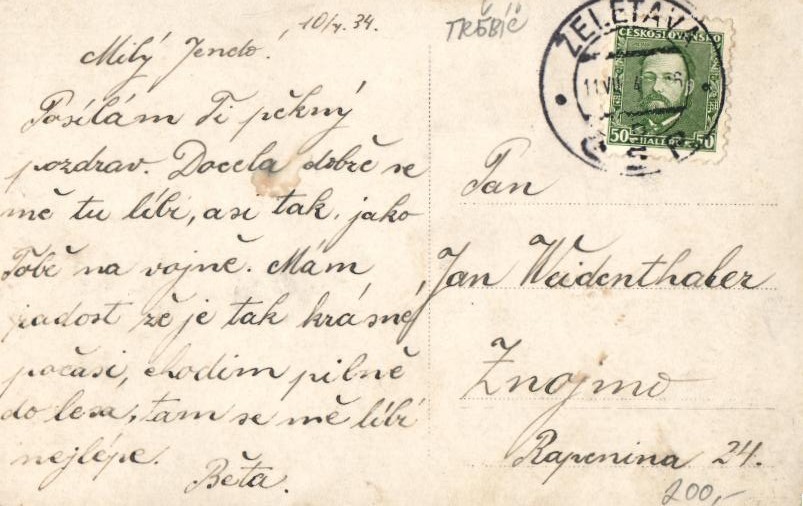 10/7. 34.
Milý Jendo!
Posílám Ti pěkný
pozdrav. Docela dobrě se
mě tu líbí, asi tak, jako
Tobě na vojně. Mám
radost že je tak krásné
počasí, chodím pilně
do lesa, tam se mě líbí
nejlépe.
Běta.
TŘEBÍČ
ŽELETAVA
ČESKOSLOVENSKO
50 HALÉŘŮ 50
Pan
Jan Weidenthaler
Znojmo
Rapenina 24.
200,-